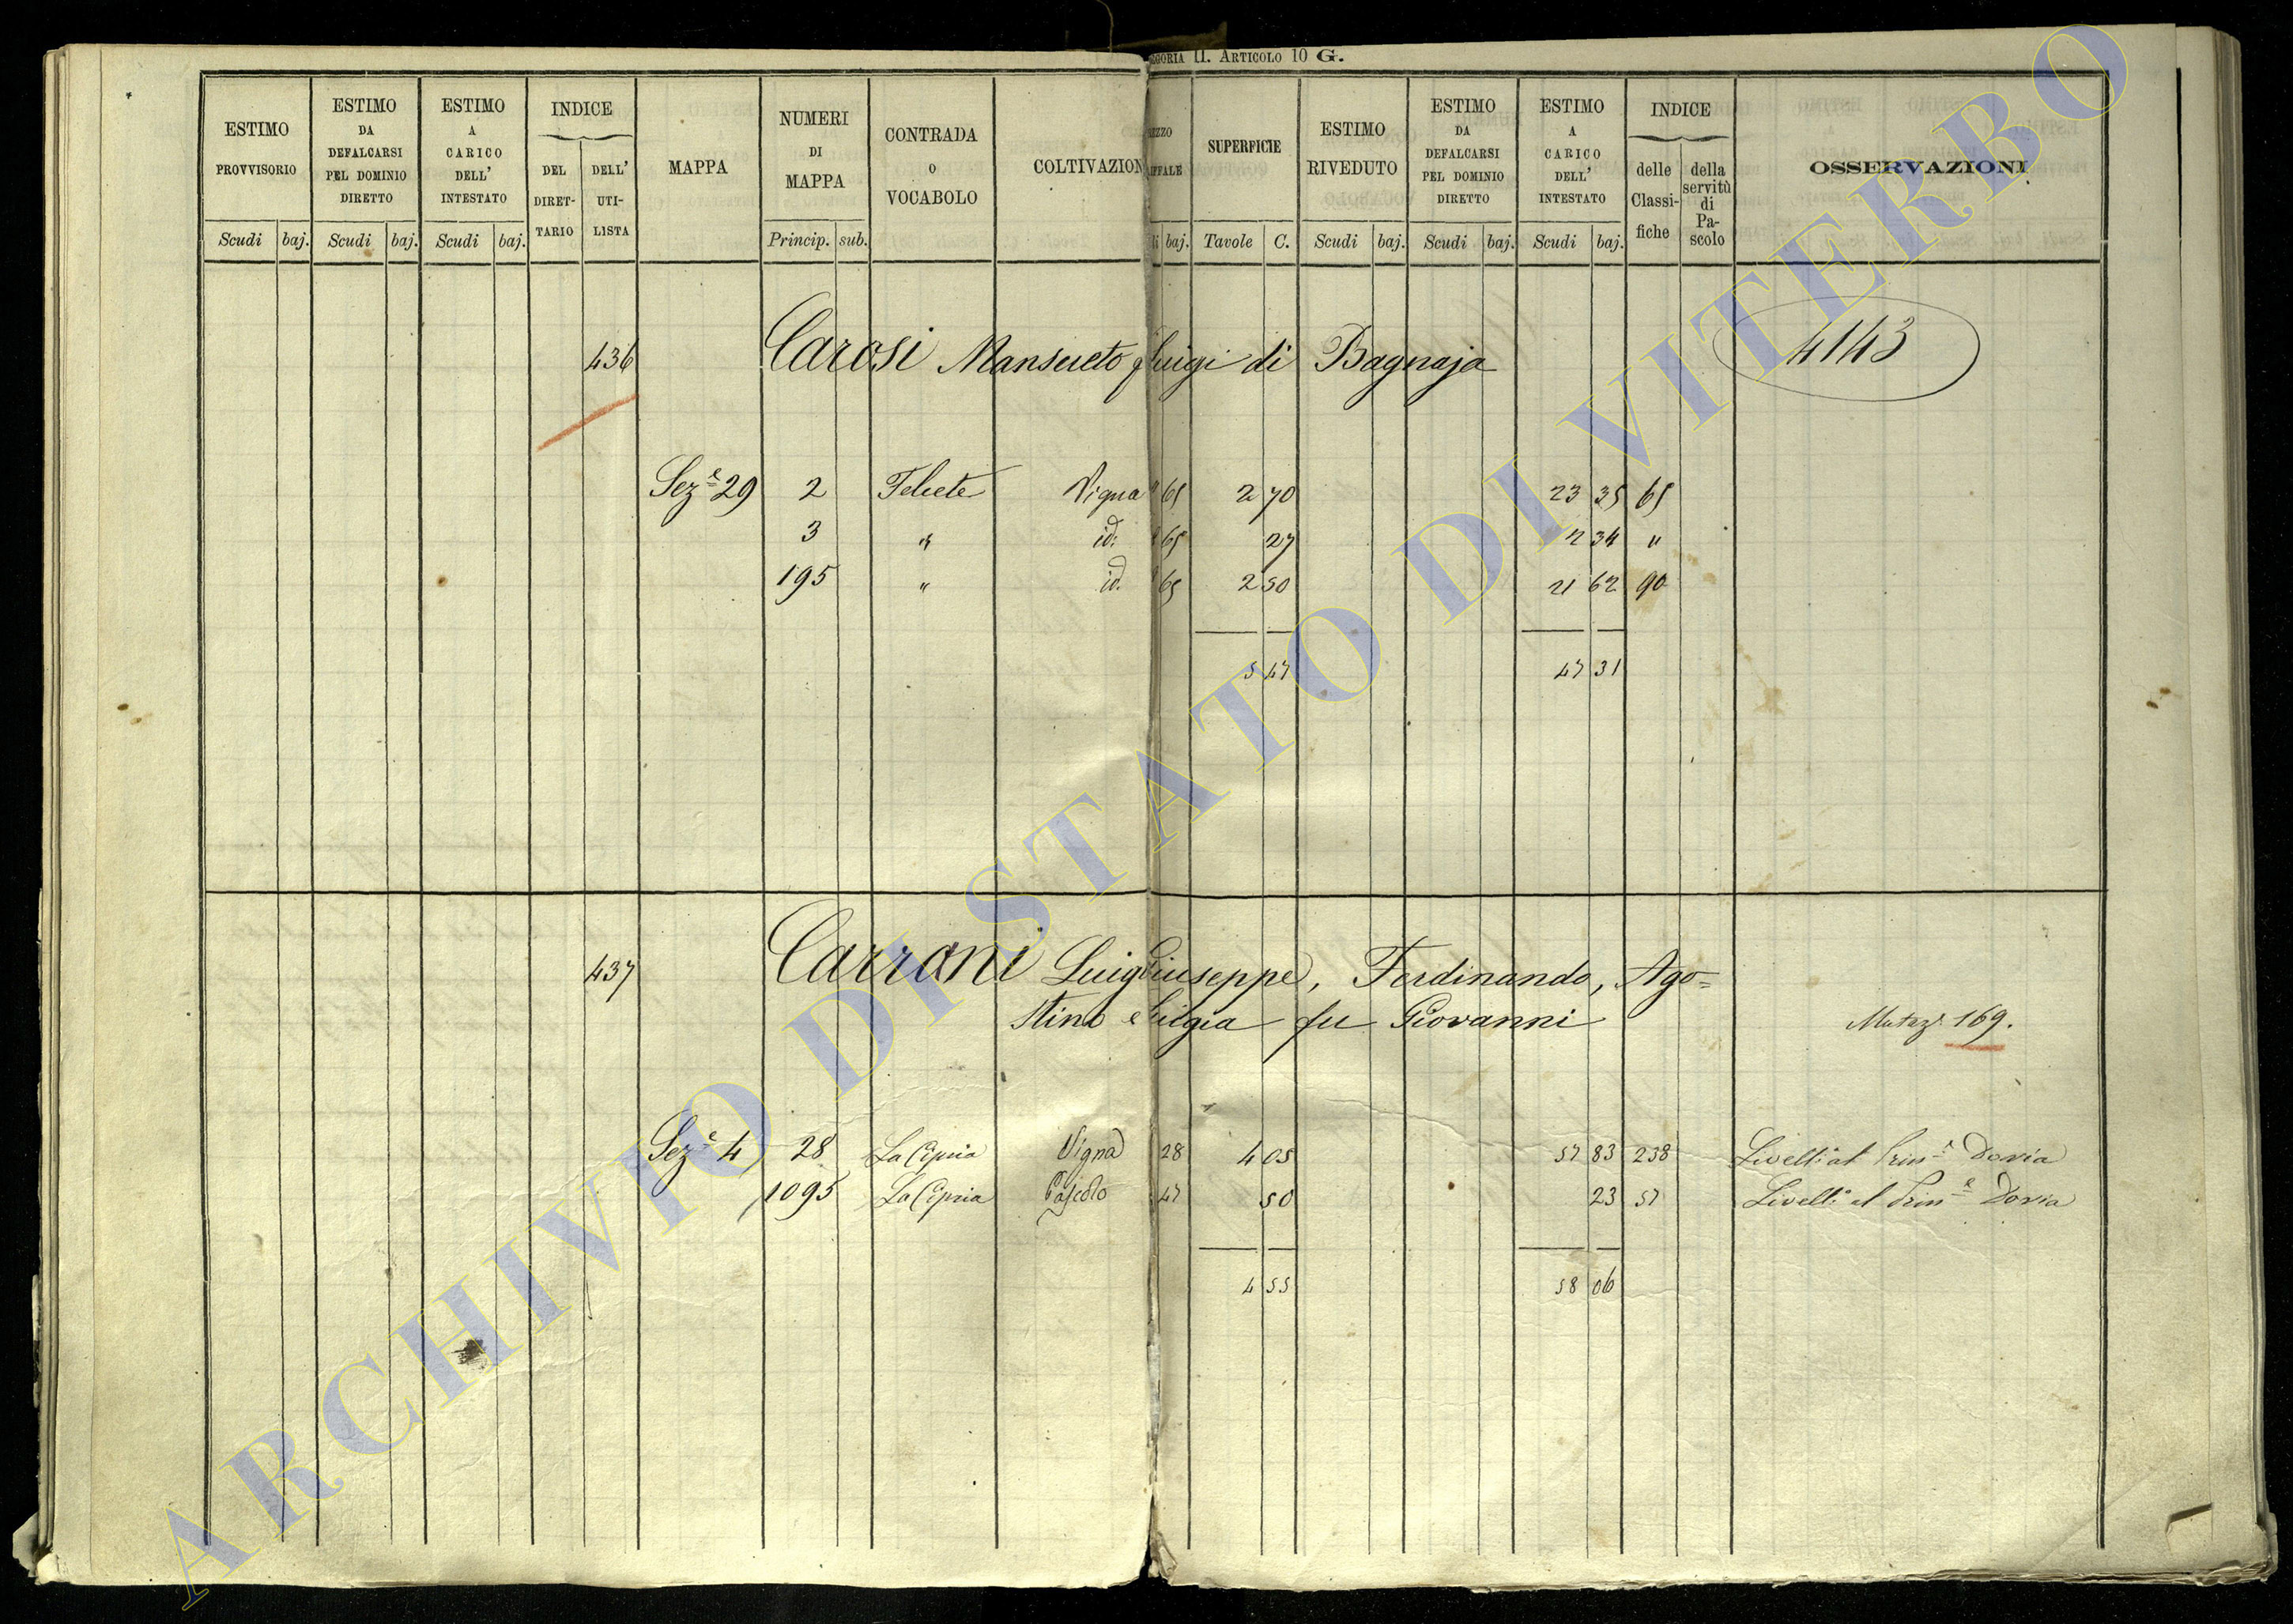 EGORIA II. ARTICOLO 10 G.
ESTIMO PROVVISORIO
ESTIMO DA DEFALCARSI PEL DOMINIO DIRETTO
ESTIMO A CARICO DELL' INTESTATO
INDICE
DEL DIRET-TARIO
DELL' UTI-LISTA
MAPPA
NUMERI DI MAPPA
CONTRADA O VOCABOLO
COLTIVAZION
EZZO IFFALE
SUPERFICIE
ESTIMO RIVEDUTO
ESTIMO DA DEFALCARSI PEL DOMINIO DIRETTO
ESTIMO A CARICO DELL' INTESTATO
INDICE
delle Classi-fiche
della servitù di Pa-scolo
OSSERVAZIONI
Scudi baj. Scudi baj. Scudi baj. Princip. sub. baj. Tavole C. Scudi baj. Scudi baj. Scudi baj.
436 Carosi Mansueto q Luigi di Bagnaja 4143
Seze 29 2 Vigna 65 2 70 23 35 65
3 " id: 65 27 2 34 "
195 " id. 65 2 50 21 62 90
5 47 47 31
437 Carrani Luigi Giuseppe, Ferdinando, Ago=
stino e Luigia fu Giovanni
Mutaz. 169.
Seze 4 28 La Cipria Vigna 28 4 05 57 83 238 Livello al Prine Doria
1095 La Cipria Pascolo 47 50 23 57 Livello al Prine Doria
4 55 58 06
ARCHIVIO DI STATO DI VITERBO